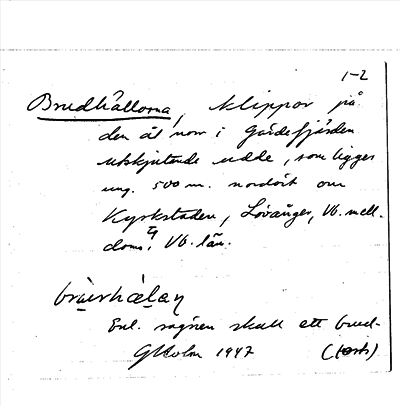 1-2
Brudhällorna, klippor på
den åt norr i Gärdefjärden
utskjutande udde, som ligger
ung. 500 m. nordöst om
Kyrkstaden, Lövånger, Vb. mell.
doms. Vb. län.
Enl. sägnen skall ett brud-
GHolm 1947 (forts)